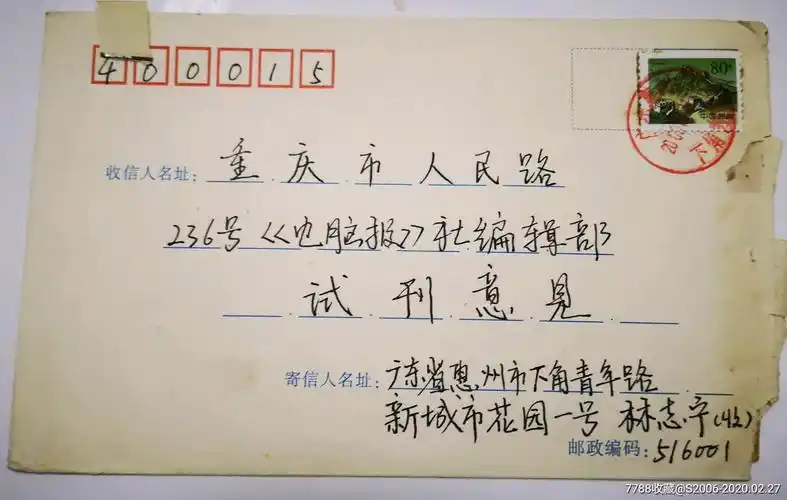 400015
80
中国邮政
收信人名址: 重庆市人民路
236号《电脑报》社编辑部
试刊意见
寄信人名址: 广东省惠州市下角青年路
新城市花园一号 林志宁(收)
邮政编码: 516001
7788收藏@S2006-2020.02.27